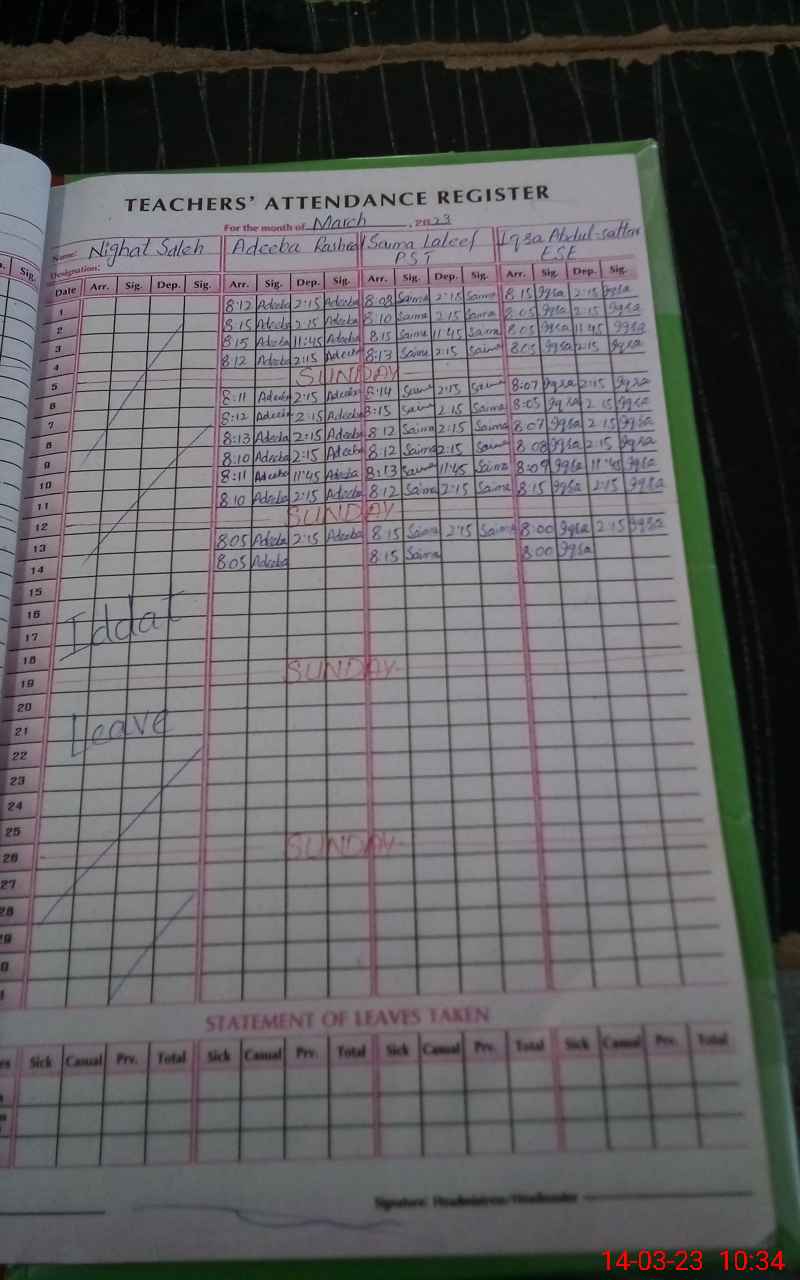 TEACHERS' ATTENDANCE REGISTER
For the month of March, 2023
Name: Nighat Saleh Adeeba Rashed Saima Lateef Iqsa Abdul-sattar
Designation: PST ESE
Sig. Date Arr. Sig. Dep. Sig. Arr. Sig. Dep. Sig. Arr. Sig. Dep. Sig. Arr. Sig. Dep. Sig.
1 8:12 Adeeba 2:15 Adeeba 8:08 Saima 2:15 Saima 8:15 Iqsa 2:15 Iqsa
2 8:15 Adeeba 2:15 Adeeba 8:10 Saima 2:15 Saima 8:05 Iqsa 2:15 Iqsa
3 8:15 Adeeba 11:45 Adeeba 8:15 Saima 11:45 Saima 8:05 Iqsa 11:45 Iqsa
4 8:12 Adeeba 2:15 Adeeba 8:13 Saima 2:15 Saima 8:05 Iqsa 2:15 Iqsa
5 SUNDAY
6 8:11 Adeeba 2:15 Adeeba 8:14 Saima 2:15 Saima 8:07 Iqsa 2:15 Iqsa
7 8:12 Adeeba 2:15 Adeeba 8:15 Saima 2:15 Saima 8:05 Iqsa 2:15 Iqsa
8 8:13 Adeeba 2:15 Adeeba 8:12 Saima 2:15 Saima 8:07 Iqsa 2:15 Iqsa
9 8:10 Adeeba 2:15 Adeeba 8:12 Saima 2:15 Saima 8:08 Iqsa 2:15 Iqsa
10 8:11 Adeeba 11:45 Adeeba 8:13 Saima 11:45 Saima 8:09 Iqsa 11:45 Iqsa
11 8:10 Adeeba 2:15 Adeeba 8:12 Saima 2:15 Saima 8:15 Iqsa 2:15 Iqsa
12 SUNDAY
13 8:05 Adeeba 2:15 Adeeba 8:15 Saima 2:15 Saima 8:00 Iqsa 2:15 Iqsa
14 8:05 Adeeba 8:15 Saima 8:00 Iqsa
15
16 Iddat
17
18
19 SUNDAY
20
21 Leave
22
23
24
25
26 SUNDAY
27
28
STATEMENT OF LEAVES TAKEN
Sick Casual Prv. Total Sick Casual Prv. Total Sick Casual Prv. Total Sick Casual Prv. Total
Signature: Headmistress/Headmaster
14-03-23 10:34